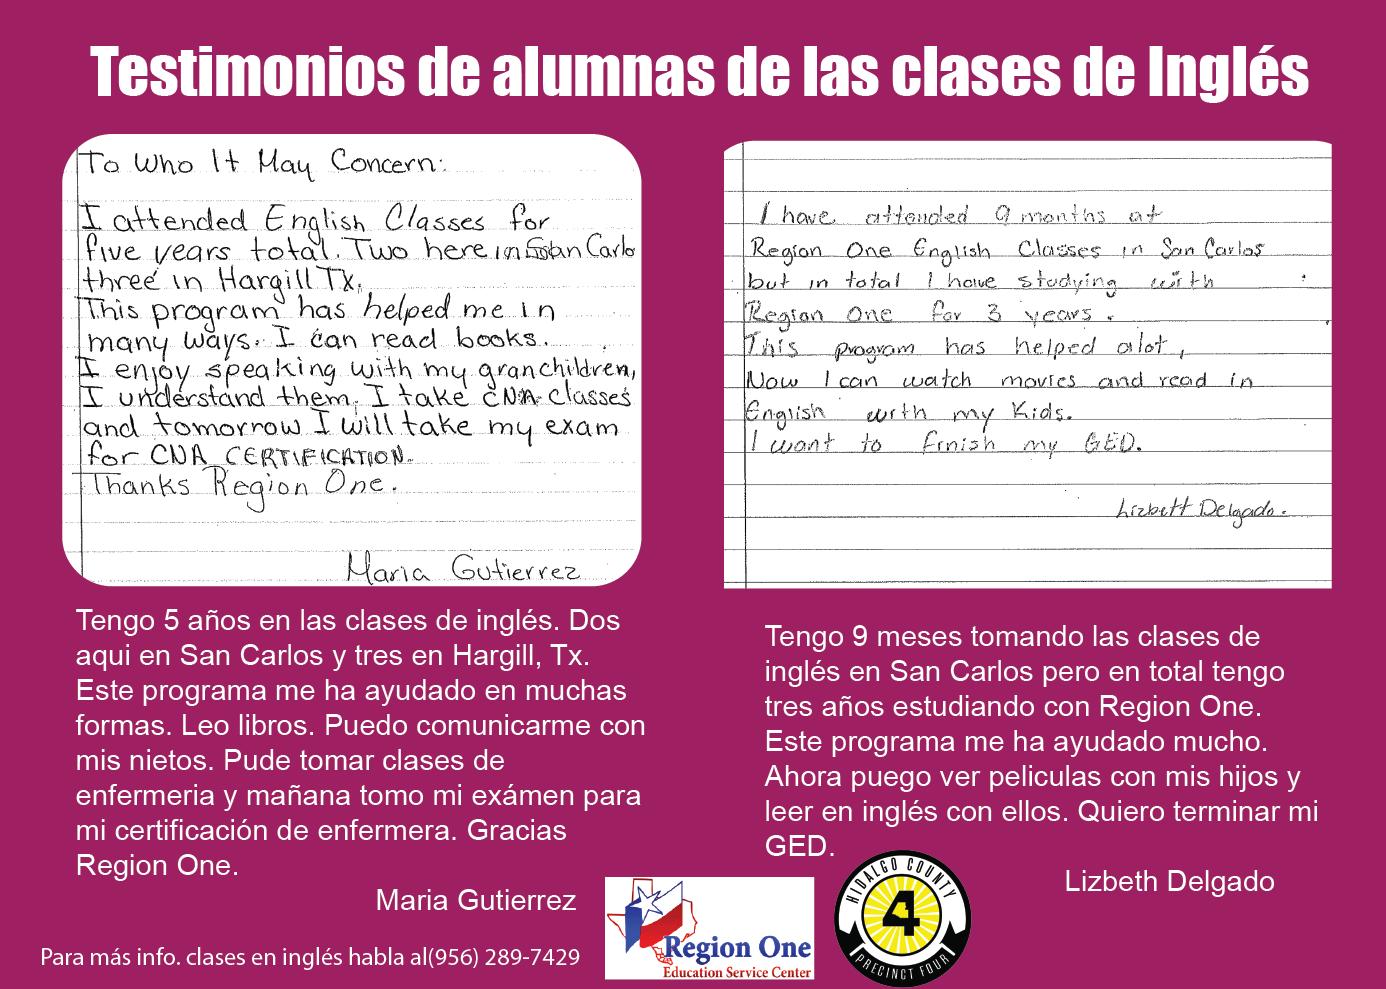 Testimonios de alumnas de las clases de Inglés
To Who It May Concern:
I attended English Classes for
five years total. Two here in San Carlo
three in Hargill TX.
This program has helped me in
many ways. I can read books.
I enjoy speaking with my granchildren,
I understand them. I take CNA classes
and tomorrow I will take my exam
for CNA CERTIFICATION.
Thanks Region One.
Maria Gutierrez
Tengo 5 años en las clases de inglés. Dos
aqui en San Carlos y tres en Hargill, Tx.
Este programa me ha ayudado en muchas
formas. Leo libros. Puedo comunicarme con
mis nietos. Pude tomar clases de
enfermeria y mañana tomo mi exámen para
mi certificación de enfermera. Gracias
Region One.
Maria Gutierrez
I have attended 9 months at
Region One English Classes in San Carlos
but in total I have studying with
Region One for 3 years.
This program has helped alot,
Now I can watch movies and read in
English with my Kids.
I want to finish my GED.
Lizbett Delgado.
Tengo 9 meses tomando las clases de
inglés en San Carlos pero en total tengo
tres años estudiando con Region One.
Este programa me ha ayudado mucho.
Ahora puego ver peliculas con mis hijos y
leer en inglés con ellos. Quiero terminar mi
GED.
Lizbeth Delgado
Para más info. clases en inglés habla al(956) 289-7429
Region One
Education Service Center
HIDALGO COUNTY
4
PRECINCT FOUR